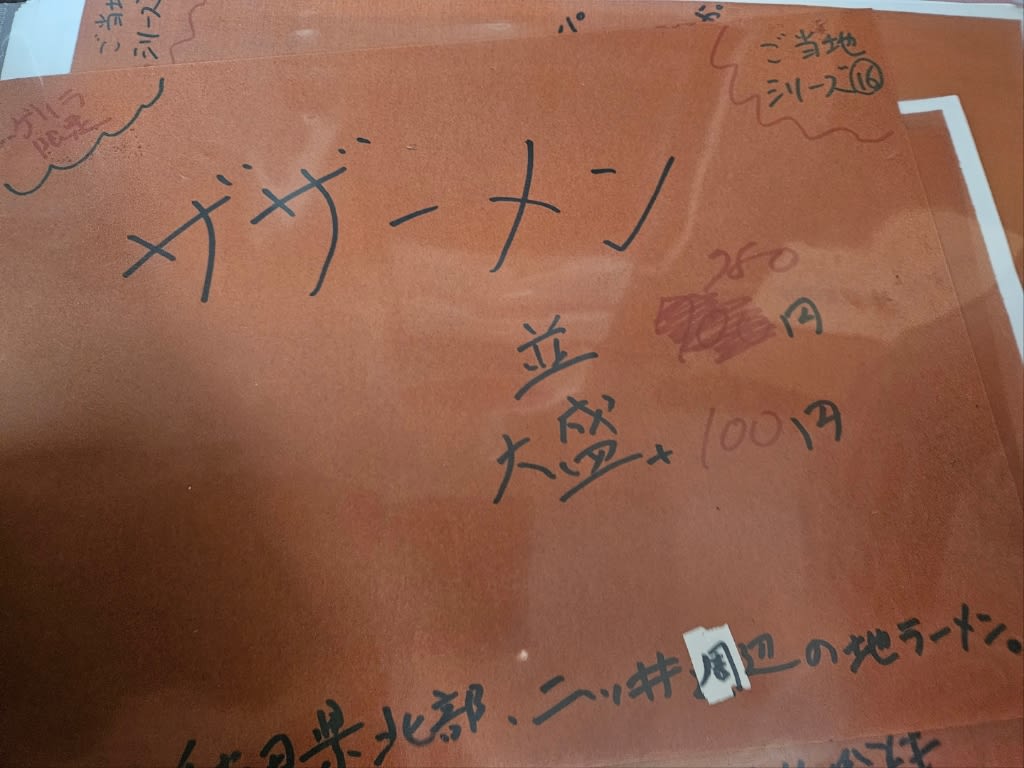 ご当地
シリーズ
ご当地
シリーズ⑯
ゲリラ
限定
ザザーメン
並 780円
大盛+100円
田県北部、二ッ井周辺の地ラーメン。